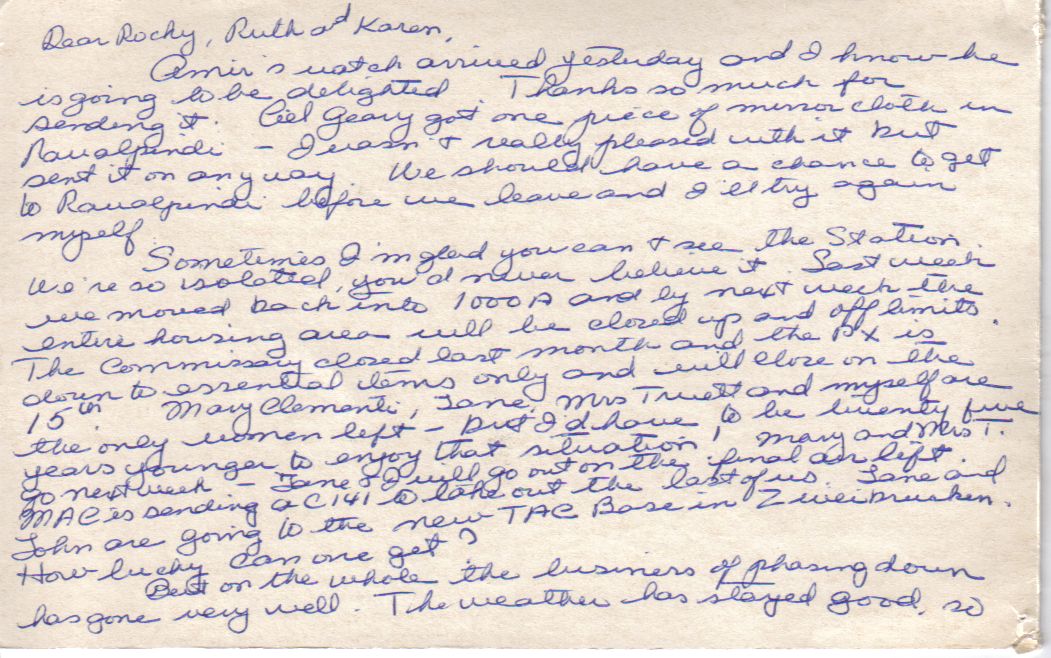 Dear Rocky, Ruth and Karen,
Amir's watch arrived yesterday and I know he
is going to be delighted. Thanks so much for
sending it. Ciel Geary got one piece of mirror cloth in
Rawalpindi - I wasn't really pleased with it but
sent it on anyway. We should have a chance to get
to Rawalpindi before we leave and I'll try again
myself.
Sometimes I'm glad you can't see the Station.
We're so isolated, you'd never believe it. Last week
we moved back into 1000A and by next week the
entire housing area will be closed up and off limits.
The Commissary closed last month and the PX is
down to essential items only and will close on the
15th. Mary Clementi, Jane, Mrs Truett and myself are
the only women left - but I'd have to be twenty five
years younger to enjoy that situation! Mary and Mrs T.
go next week - Jane & I will go out on the final air lift.
MAC is sending a C141 to take out the last of us. Jane and
John are going to the new TAC Base in Zweibrucken.
How lucky can one get?
But on the whole the business of phasing down
has gone very well. The weather has stayed good, so